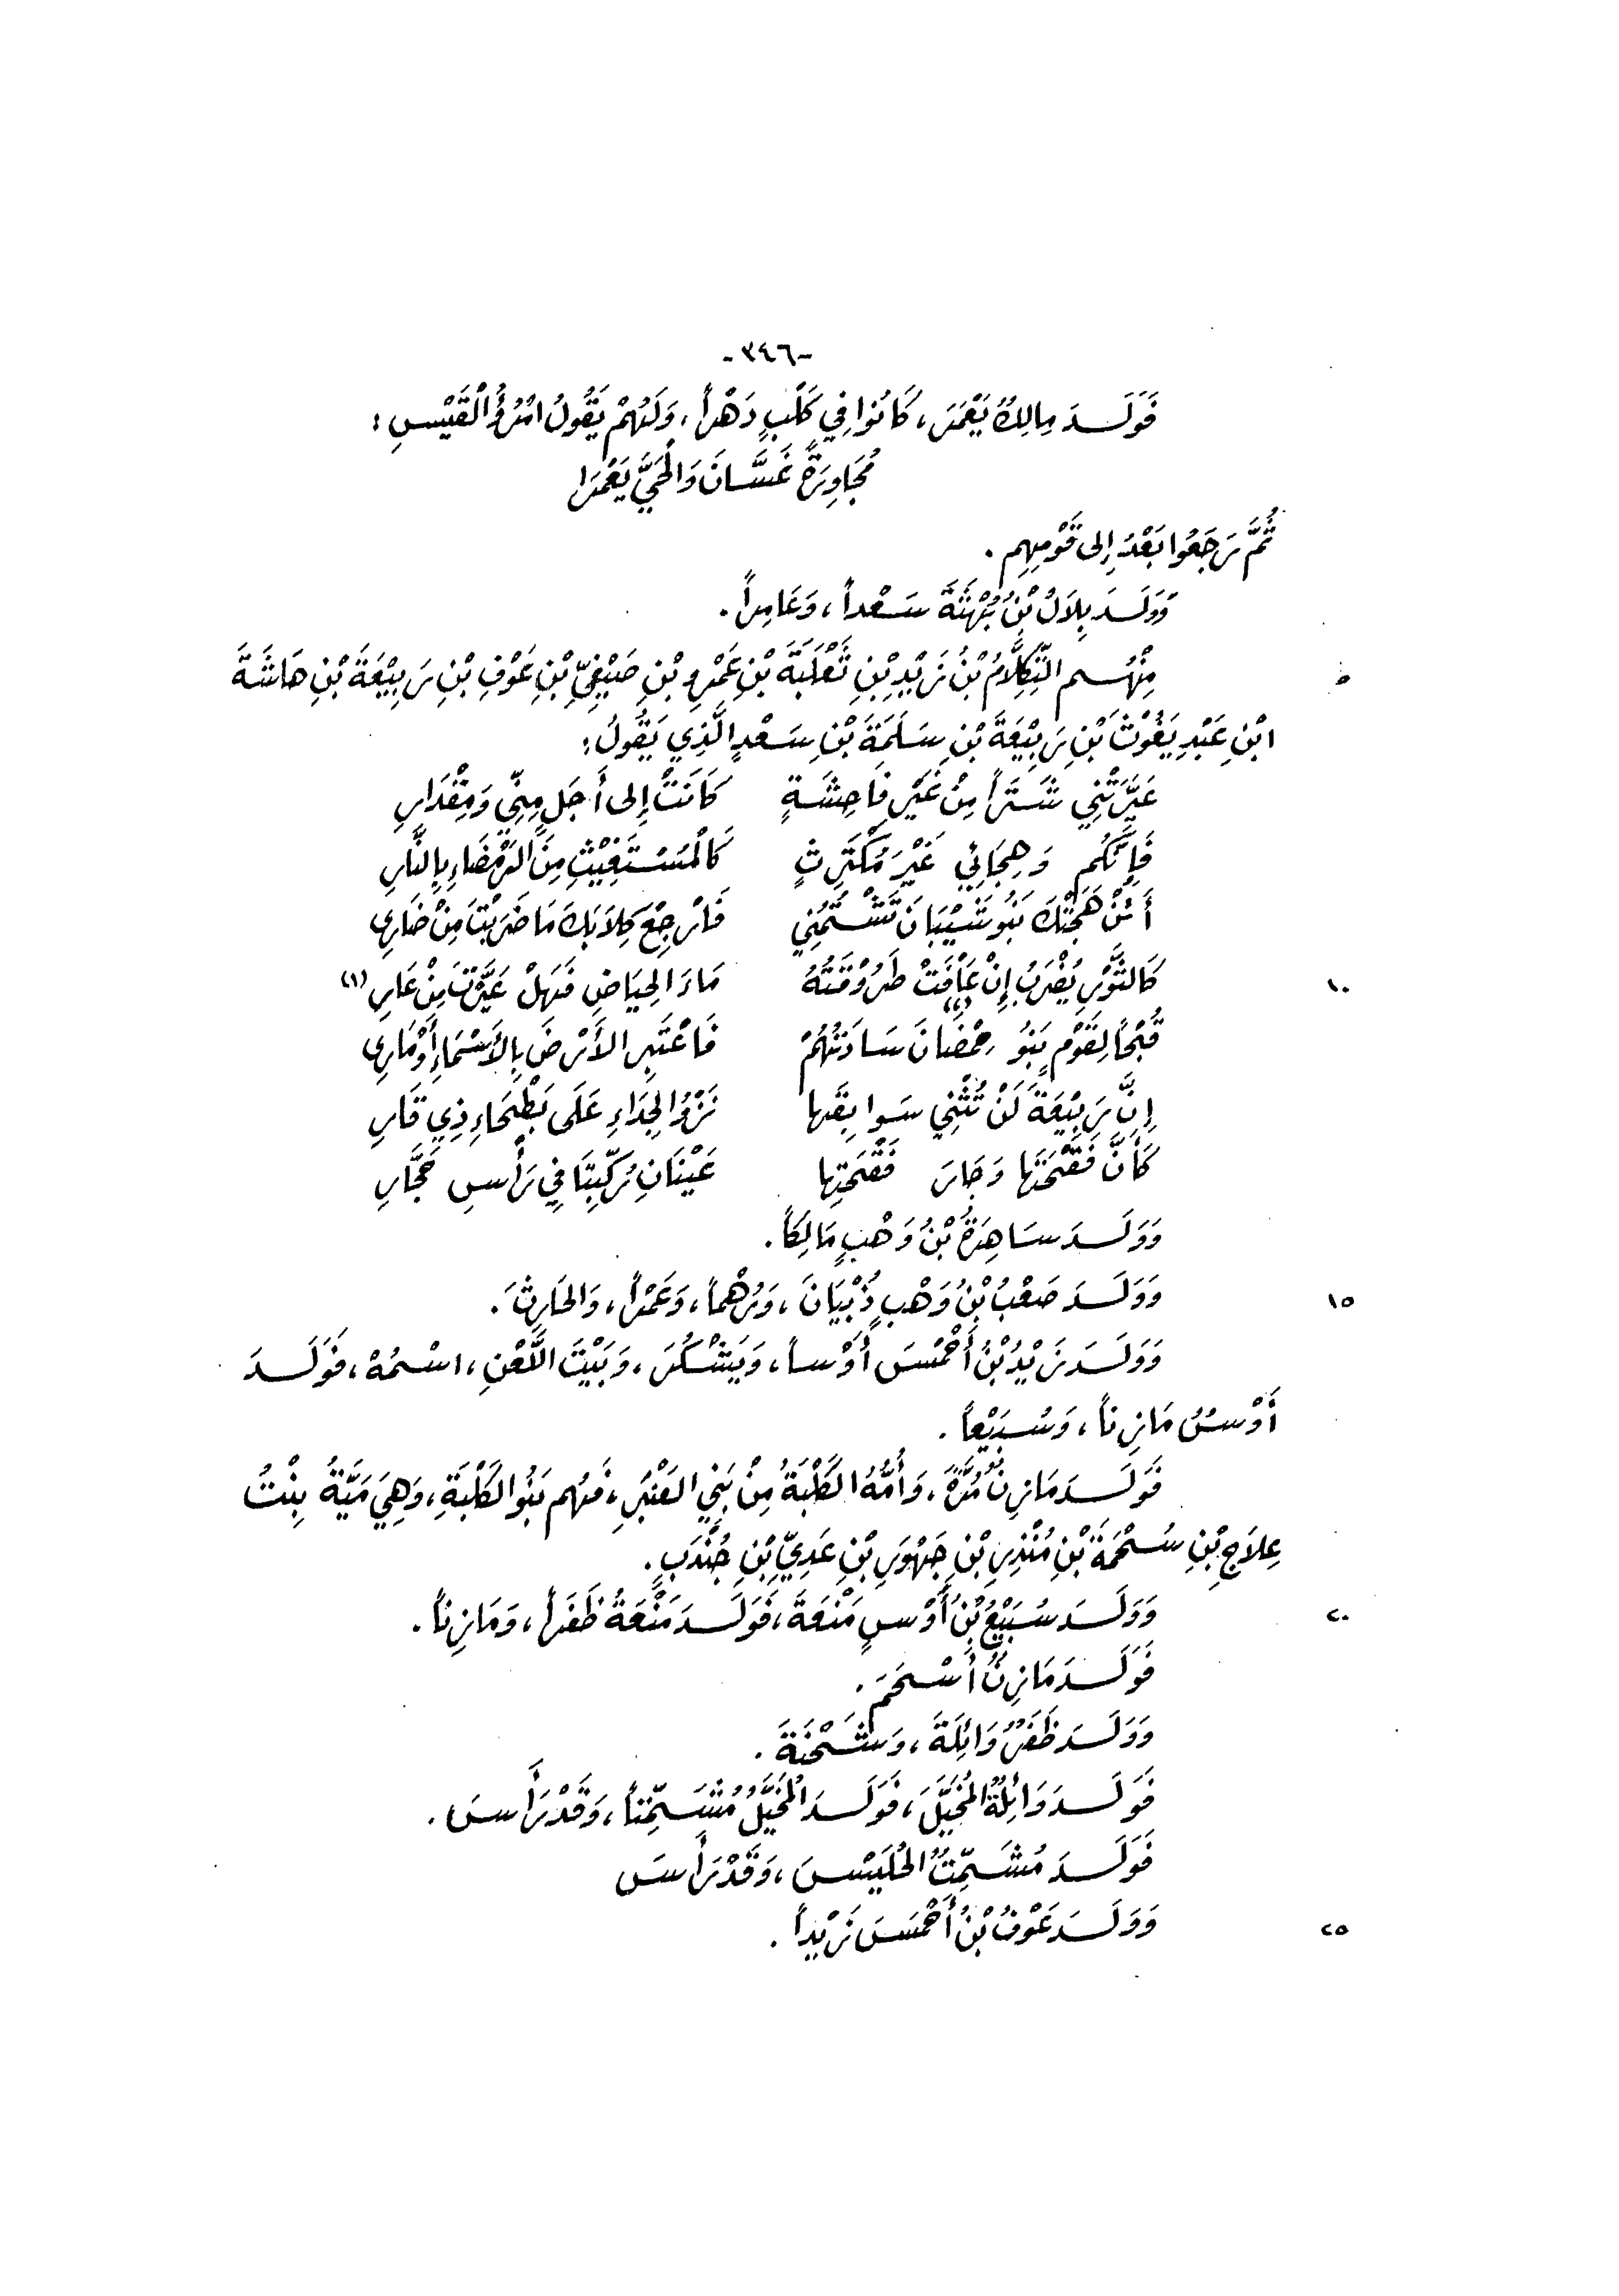 -٣٤٦-
فَوَلَدَ مالِكٌ يَعْمَرَ، كَانُوا فِي كَلْبٍ دَهْراً، وَلَهُمْ يَقُولُ امْرُؤُ الْقَيْسِ :
مُجَاوِرَةً غَسَّانَ وَالْحَيَّ يَعْمَرَا
ثُمَّ رَجَعُوا بَعْدَ إِلى قَوْمِهِم .
وَوَلَدَ بِلاَلُ بْنُ بُهْثَةَ سَعْداً، وَعَامِراً .
مِنْهُم التِّكِلَّامُ بْنُ زَيْدِ بْنِ ثَعْلَبَةَ بْنِ عَمْرِو بْنِ صَيْفِيِّ بْنِ عَوْفِ بْنِ رَبِيْعَةَ بْنِ هَاشَةَ ٥
ابْنِ عَبْدِ يَغُوْثَ بْنِ رَبِيْعَةَ بْنِ سَلَمَةَ بْنِ سَعْدٍ الَّذِي يَقُولُ :
عَيَّرْتَنِي شَتَراً مِنْ غَيْرِ فَاحِشَةٍ كَانَتْ إِلى أَجَلٍ مِنِّي وَمِقْدَارِ
فَإِنَّكُم وَهِجَائِي غَيْرَ مُكْتَرِثٍ كَالْمُسْتَغِيْثِ مِنَ الرَّمْضَاءِ بِالنَّارِ
أَئنْ هَجَتْكَ بَنُو شَيْبَانَ تَشْتُمُنِي فَارْجِعْ كِلاَبَكَ مَا ضَرَبْتَ مِنْ ضَارِي
كَالثَّوْرِ يُضْرَبُ إِنْ عَافَتْ طَرُوْقَتُهُ مَاءَ الحِيَاضِ فَهَلْ عَيَّرْتَ مِنْ عَارِ (١) ١٠
قُبْحاً لِقَوْمٍ بَنُو رمْضانَ سَادَتُهُمْ (٢) فَاعْتَبِرِ الأَرْضَ بِالأَسْمَاءِ أَوْ مَارِي
إِنَّ رَبِيْعَةَ لَنْ تُثْنِي سَوابِقَها نَزْوُ الجِدَاءِ عَلَى بَطْحَاءِ ذِي قَارِ
كَأَنَّ فَقْحَتَها وَجَارَ فَقْحَتِها عَيْنَانِ رُكِّبِتَا فِي رَأْسِ حَجَّارِ
وَوَلَدَ سَاهِرَةُ بْنُ وَهْبٍ مَالِكاً .
وَوَلَدَ صَعْبُ بْنُ وَهْبٍ ذُبْيَانَ، وَرُهْماً، وَعَمْراً، وَالحَارِثَ . ١٥
وَوَلَدَ زَيْدُ بْنُ أَحْمَسَ أَوْساً، وَيَشْكُرَ، وَبَيْتَ اللَّعْنِ، اسْمُهْ، فَوَلَدَ
أَوْسُ مَازِناً، وَسُبَيْعاً .
فَوَلَدَ مَازِنٌ مُرَّةَ، وَأُمُّهُ الكَلْبَةُ مِنْ بَنِي العَنْبَرِ، فَهُم بَنُو الكَلْبَةِ، وَهِيَ مَيَّةُ بِنْتُ
عِلاَجِ بْنِ سُحْمَةَ بْنِ مُنْذِرِ بْنِ جَهْوَرِ بْنِ عَدِيِّ بْنِ جُنْدَبٍ .
وَوَلَدَ سُبَيْعُ بْنُ أَوْسٍ مَنْعَةَ، فَوَلَدَ مَنْعَةُ ظَفَراً، وَمَازِناً . ٢٠
فَوَلَدَ مَازِنٌ أَسْحَمَ .
وَوَلَدَ ظَفَرٌ وَائِلَةَ، وَشَحْنَةَ .
فَوَلَدَ وَائِلَةُ الْمُخَيَّلَ، فَوَلَدَ الْمُخَيَّلُ مُشَمِّتاً، وَقَدْ رَأَسَ .
فَوَلَدَ مُشَمِّتٌ الحُلَيْسَ، وَقَدْ رَأَسَ
وَوَلَدَ عَوْفُ بْنُ أَحْمَسَ زَيْداً . ٢٥